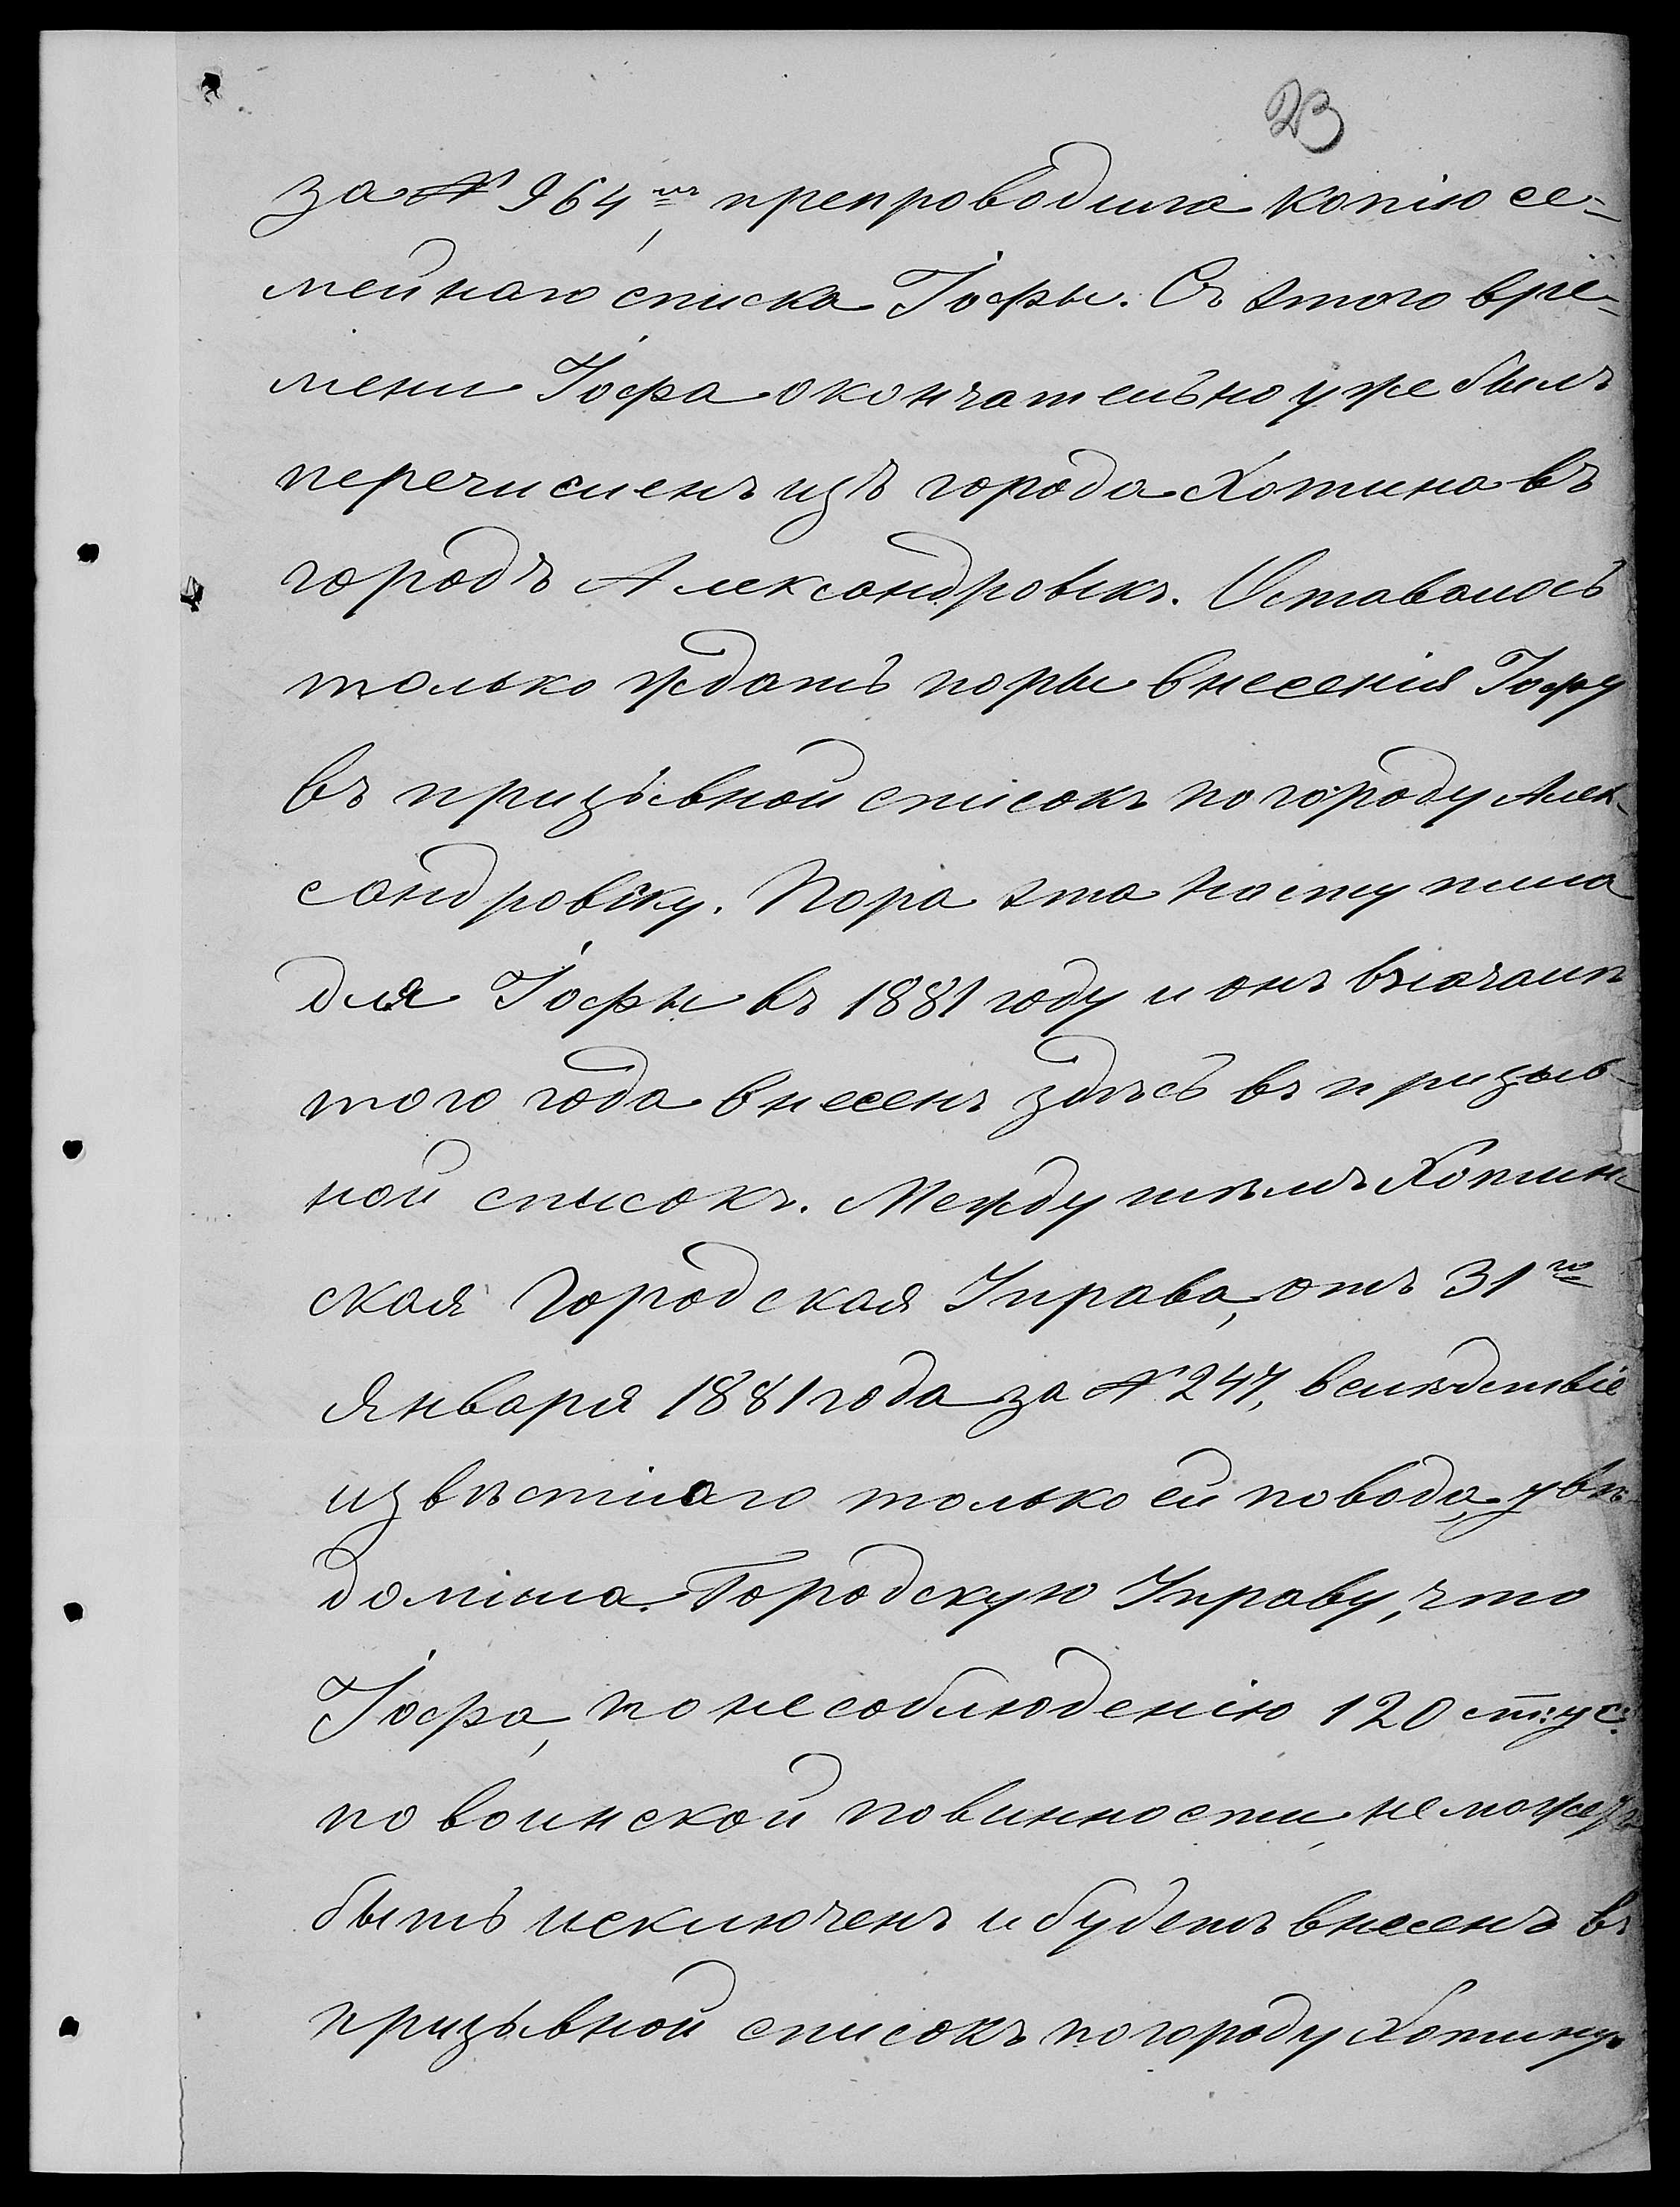 23
за № 964мъ, препроводила копію се-
мейнаго списка Іофы. Съ этого вре-
мени Іофа окончательно уже былъ
перечисленъ изъ города Хотина въ
городъ Александровскъ. Оставалось
только ждать поры внесенія Іофу
въ призывной списокъ по городу Алек-
сандровску. Пора эта наступила
для Іофы въ 1881 году и онъ вначалѣ
того года внесенъ здѣсь въ призыв-
ной списокъ. Между тѣмъ Хотин-
ская Городская Управа, отъ 31го
Января 1881 года за № 247, вслѣдствіе
извѣстнаго только ей повода, увѣ-
домила Городскую Управу, что
Іофа, по несоблюденію 120 ст: ус:
по воинской повинности, не можетъ
быть исключенъ и будетъ внесенъ въ
призывной списокъ по городу Хотину